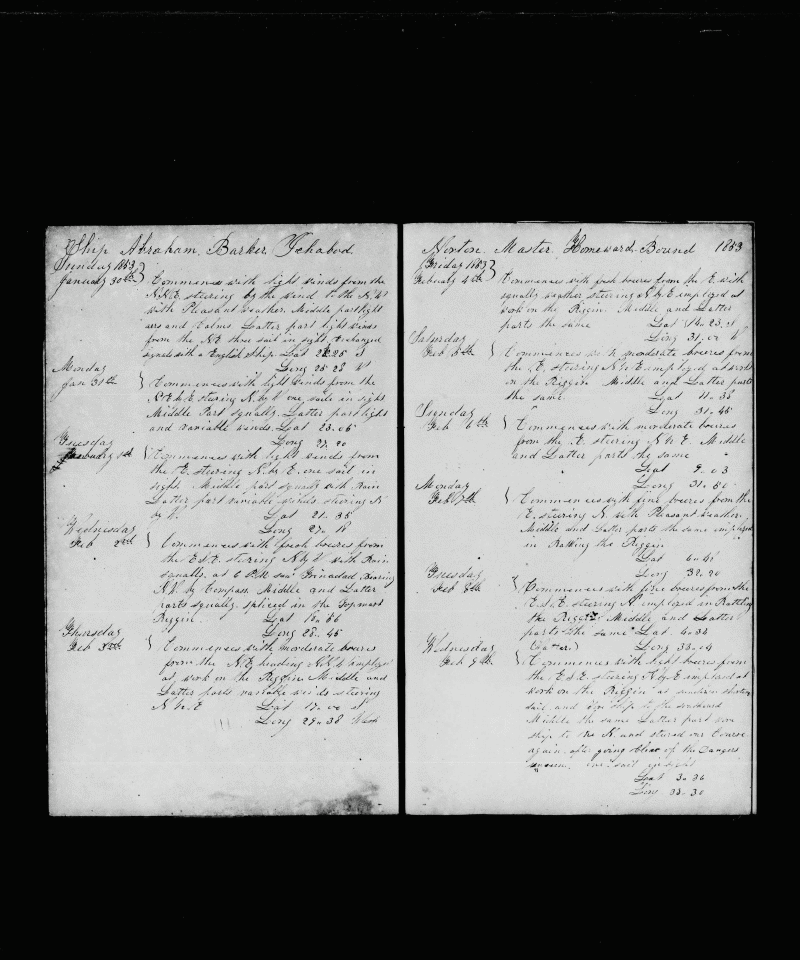 Ship Abraham Barker Ichabod
Sunday 1853
January 30th } Commences with light winds from the
N.N.E. stering by the wind to the N.W
with Pleasant weather. Middle part light
airs and Calms. Latter part light winds
from the N.E three sail in sight exchanged
signals with a English ship. Lat 22.25 S
Long 25 28 W
Monday
Jan 31th } Commences with light winds from the
N.E. stering N. by W one sail in sight
Middle Part squally. Latter part light
and variable winds Lat 23.05
Long 27.20
Tuesday
February 1th } Commences with light winds from
the E. stering N. by E. one sail in
sight. Middle part squally with Rain
Latter part variable winds. stering N
by W. Lat 21.35
Long 27 W
Wednesday
Feb 2th } Commences with fresh breezes from
the E.S.E. stering N by W with Rain
squalls. at 6 P.M saw Trinadad Bearing
N.W. by Compass Middle and Latter
parts squally. spliced in the Topmast
Riggin Lat
Long 28.45
Thursday
Feb 3th } Commences with morderate breezes
from the N.E heading N.N.W employed
at work in the Riggin. Middle and
Latter parts variable winds stering
N by E Lat 17.00 S
Long 29.38 West
Norton Master Homeward Bound 1853
Friday 1853
Febuary 4th } Commences with fresh breezes from the E. with
squally weather stering N by E employed at
work on the Riggin. Middle and Latter
parts the same Lat 14.23 S
Long 31.00 W
Saturday
Feb 5th } Commences with moderate breezes from
the E. stering N by E employed at work
on the Riggin Middle and Latter parts
the same. Lat 11.35
Long 31.45
Sunday
Feb 6th } Commences with morderate breezes
from the E. stering N by E. Middle
and Latter parts the same
Lat 9.03
Long 31.50
Monday
Feb 7th } Commences with fine breezes from the
E. stering N with Pleasant weather.
Middle and Latter parts the same employed
in Rattling the Riggin
Lat
Long 32.20
Tuesday
Feb 8th } Commences with fine breezes from the
E.S.E. stering N. employed in Rattling
the Riggin Middle and Latter
parts the same Lat. 4.34
Long 33.04
Wednesday
Feb 9th } Commences with light breezes from
the E.S.E. stering N by E employed at
work on the Riggin at
sail and ship to the
Middle the same Latter part
ship to the N. and stered our Course
again after going clear of the Dangers
one sail in sight
Lat 3.36
Long 33.30